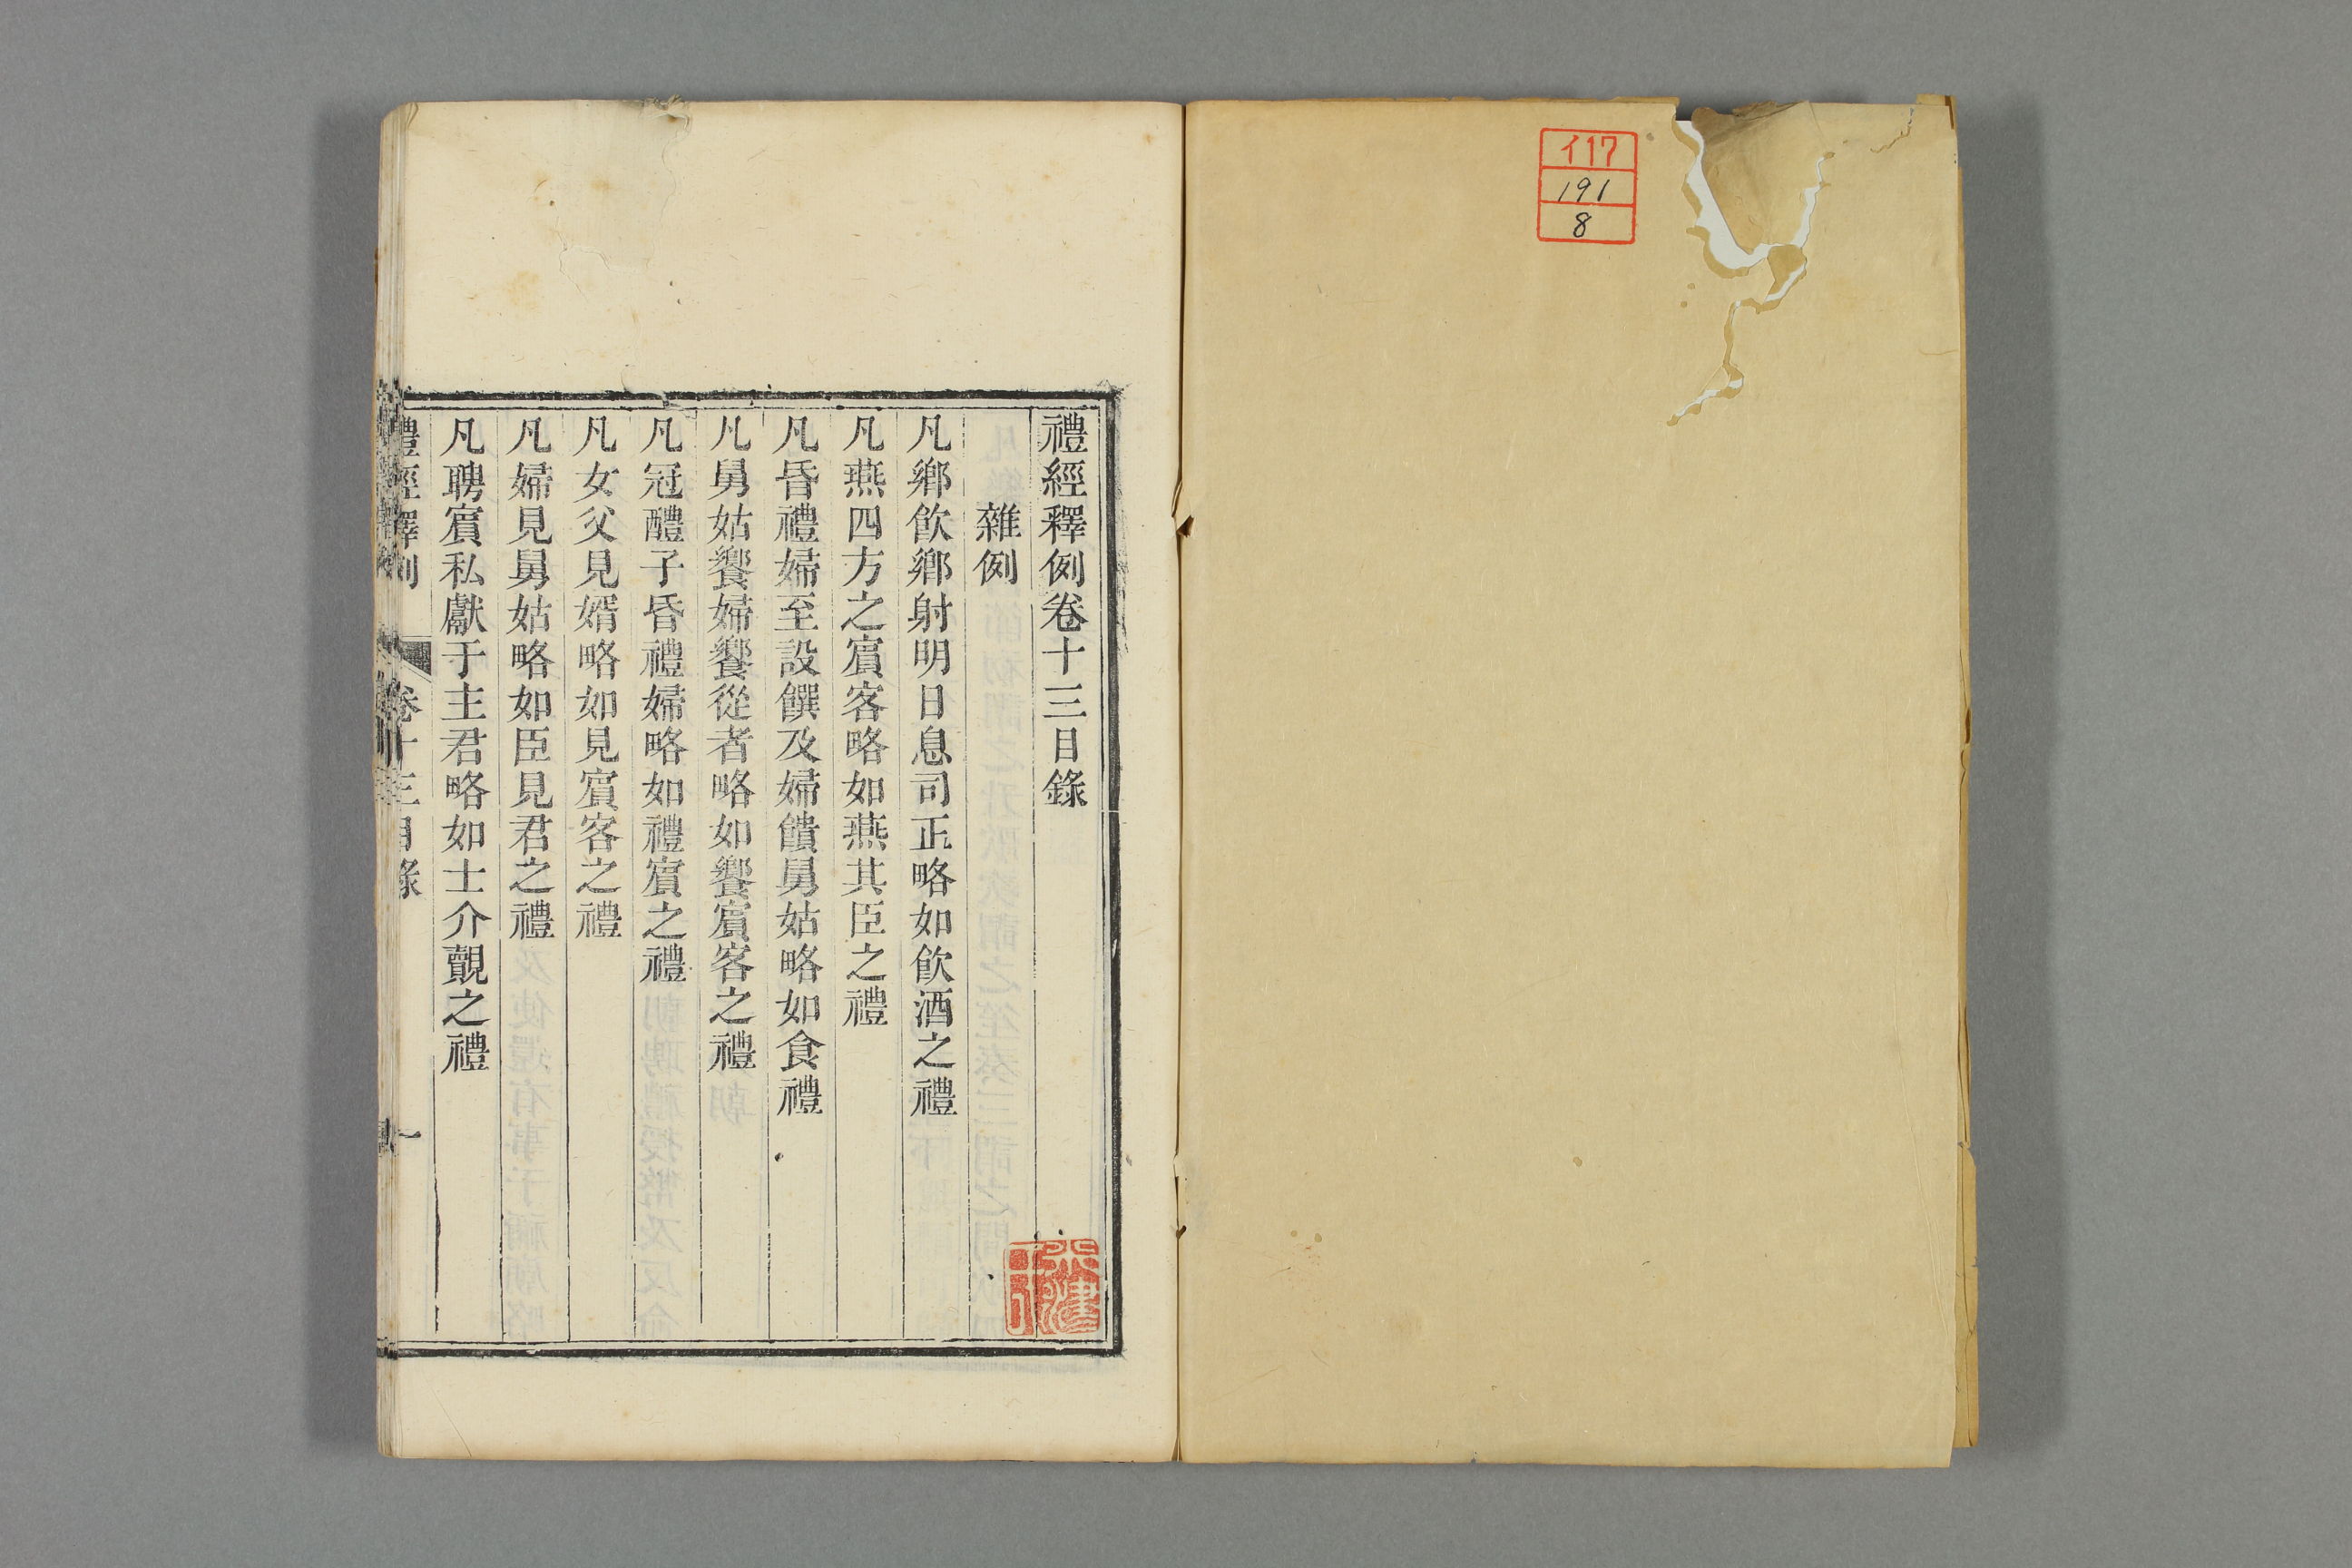 イ17
191
8
禮經釋例卷十三目錄
雜例
凡鄉飮鄉射明日息司正略如飮酒之禮
凡燕四方之賓客略如燕其臣之禮
凡昏禮婦至設饌及婦饋舅姑略如食禮
凡舅姑饗婦饗從者略如饗賓客之禮
凡冠醴子昏禮婦略如禮賓之禮
凡女父見婿略如見賓客之禮
凡婦見舅姑略如臣見君之禮
凡聘賓私獻于主君略如士介覿之禮
禮經釋例 卷十三目錄 一